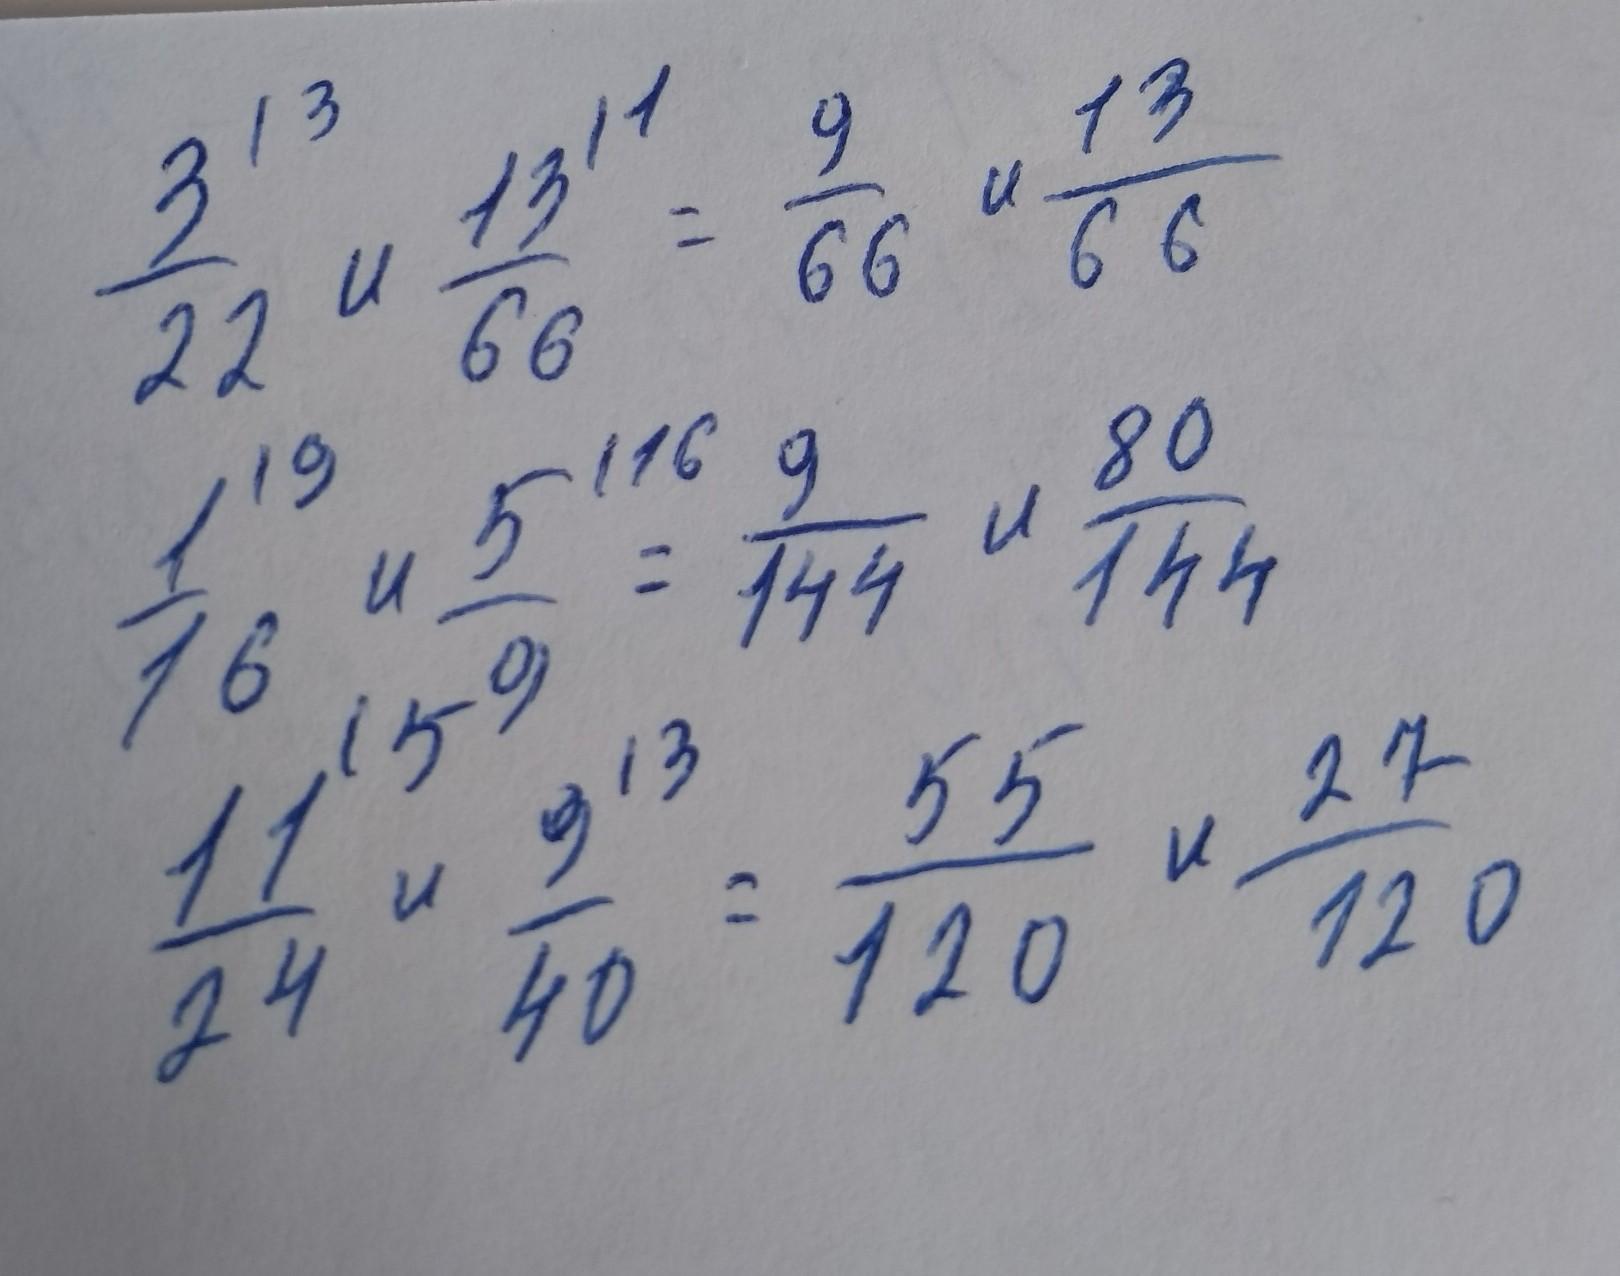 3/22 |3 и 13/66 |1 = 9/66 и 13/66
1/16 |9 и 5/9 |16 = 9/144 и 80/144
11/24 |5 и 9/40 |3 = 55/120 и 27/120